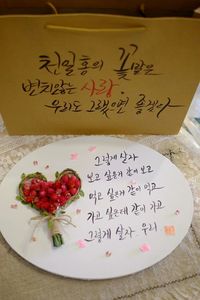 천일홍의 꽃말은
변치않는 사랑.
우리도 그랬으면 좋겠다
그렇게 살자
보고 싶은거 같이 보고
먹고 싶은거 같이 먹고
가고 싶은데 같이 가고
그렇게 살자. 우리